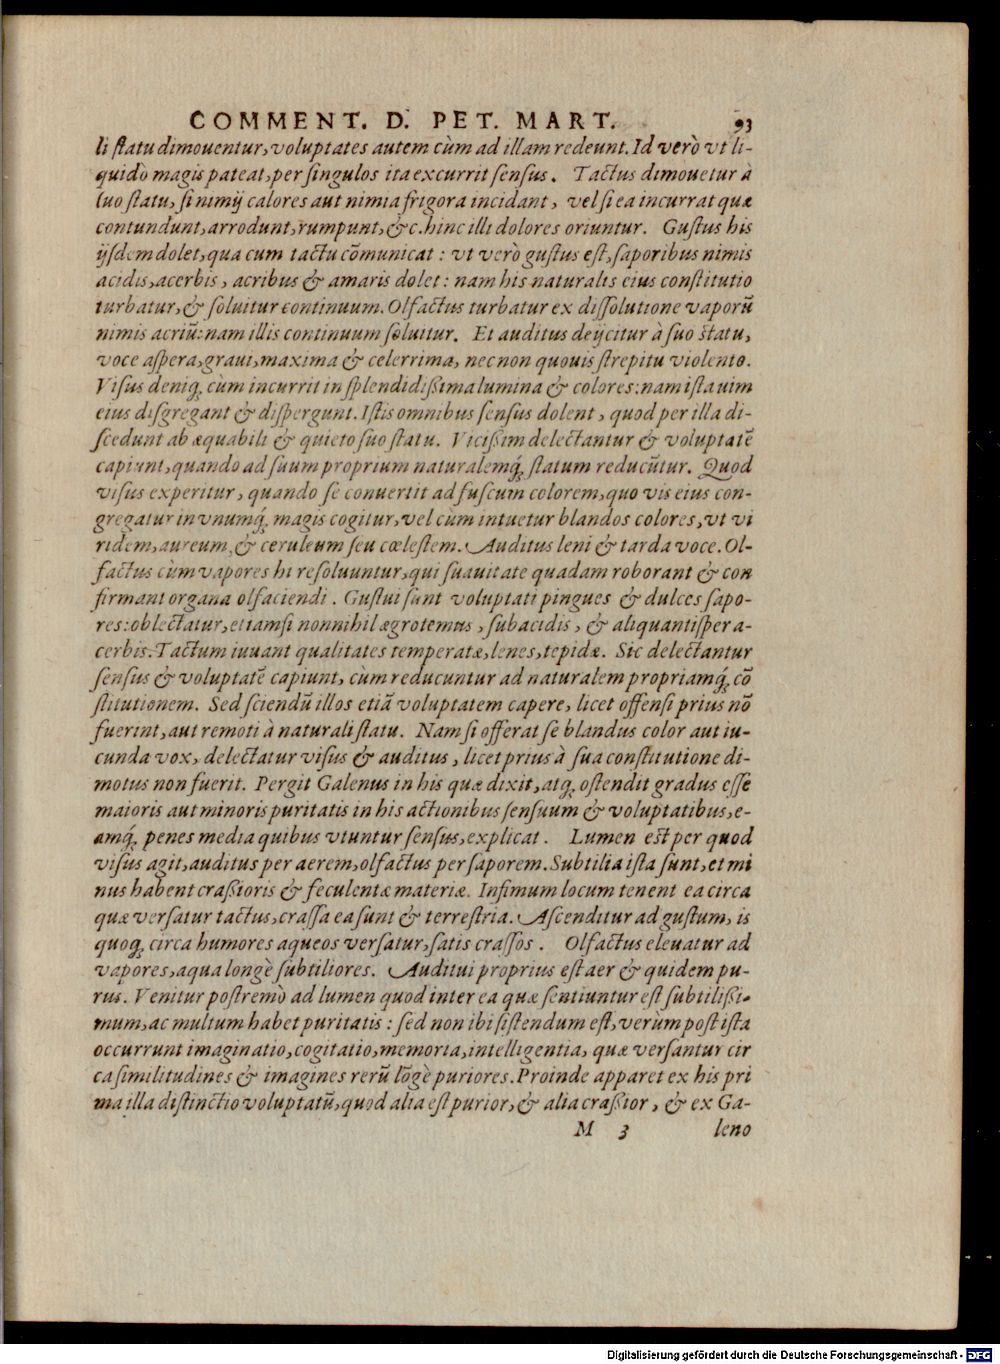 COMMENT. D. PET. MART. 93
li ſtatu dimouentur, voluptates autem cùm ad illam redeunt. Id verò vt li-
quidò magis pateat, per ſingulos ita excurrit ſenſus. Tactus dimouetur à
ſuo ſtatu, ſi nimij calores aut nimia frigora incidant, vel ſi ea incurrat quæ
contundunt, arrodunt, rumpunt, &c. hinc illi dolores oriuntur. Guſtus his
ijſdem dolet, qua cum tactu cōmunicat: vt verò guſtus eſt, ſaporibus nimis
acidis, acerbis, acribus & amaris dolet: nam his naturalis eius conſtitutio
turbatur, & ſoluitur continuum. Olfactus turbatur ex diſſolutione vaporū
nimis acriū: nam illis continuum ſoluitur. Et auditus deijcitur à ſuo ſtatu,
voce aſpera, graui, maxima & celerrima, necnon quouis ſtrepitu violento.
Viſus deniq́; cùm incurrit in ſplendidißima lumina & colores: nam iſta uim
eius diſgregant & diſpergunt. Iſtis omnibus ſenſus dolent, quod per illa di-
ſcedunt ab æquabili & quieto ſuo ſtatu. Vicißim delectantur & voluptatē
capiunt, quando ad ſuum proprium naturalemq́; ſtatum reducūtur. Quod
viſus experitur, quando ſe conuertit ad fuſcum colorem, quo vis eius con-
gregatur in vnumq́; magis cogitur, vel cùm intuetur blandos colores, vt vi
ridem, aureum, & ceruleum ſeu cœleſtem. Auditus leni & tarda voce. Ol-
factus cùm vapores hi reſoluuntur, qui ſuauitate quadam roborant & con
firmant organa olfaciendi. Guſtui ſunt voluptati pingues & dulces ſapo-
res: oblectatur, etiamſi nonnihil ægrotemus, ſubacidis, & aliquantiſper a-
cerbis. Tactum iuuant qualitates temperatæ, lenes, tepidæ. Sic delectantur
ſenſus & voluptatē capiunt, cùm reducuntur ad naturalem propriamq́; cō
ſtitutionem. Sed ſciendū illos etiā voluptatem capere, licet offenſi prius nō
fuerint, aut remoti à naturali ſtatu. Nam ſi offerat ſe blandus color aut iu-
cunda vox, delectatur viſus & auditus, licet prius à ſua conſtitutione di-
motus non fuerit. Pergit Galenus in his quæ dixit, atq́; oſtendit gradus eſſe
maioris aut minoris puritatis in his actionibus ſenſuum & voluptatibus, e-
amq́; penes media quibus vtuntur ſenſus, explicat. Lumen eſt per quod
viſus agit, auditus per aerem, olfactus per ſaporem. Subtilia iſta ſunt, et mi
nus habent craßioris & feculentæ materiæ. Infimum locum tenent ea circa
quæ verſatur tactus, craſſa ea ſunt & terreſtria. Aſcenditur ad guſtum, is
quoq́; circa humores aqueos verſatur, ſatis craſſos. Olfactus eleuatur ad
vapores, aqua longè ſubtiliores. Auditui proprius eſt aer & quidem pu-
rus. Venitur poſtremò ad lumen quod inter ea quæ ſentiuntur eſt ſubtilißi-
mum, ac multum habet puritatis: ſed non ibi ſiſtendum eſt, verùm poſt iſta
occurrunt imaginatio, cogitatio, memoria, intelligentia, quæ verſantur cir
ca ſimilitudines & imagines rerū lōgè puriores. Proinde apparet ex his pri
ma illa diſtinctio voluptatū, quod alia eſt purior, & alia craßior, & ex Ga-
M 3 leno
Digitalisierung gefördert durch die Deutsche Forschungsgemeinschaft - DFG